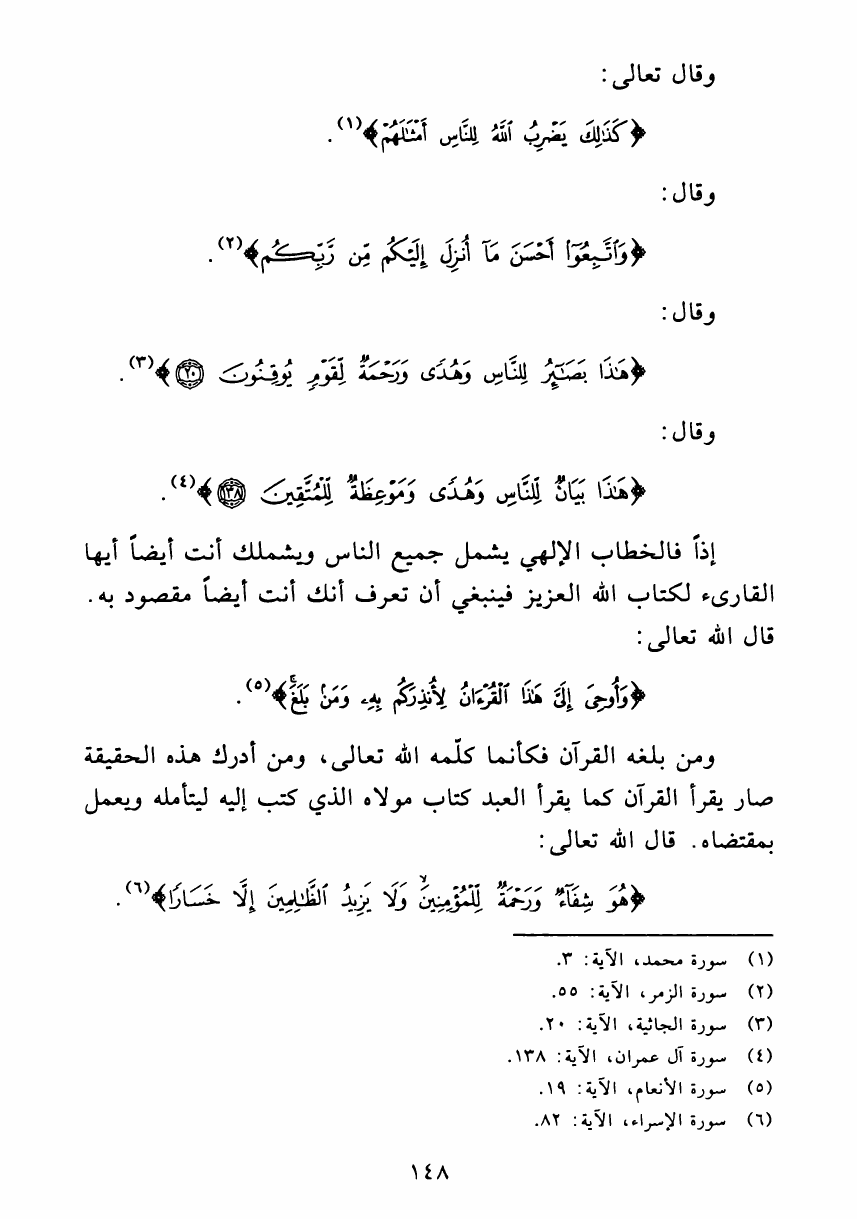 وقال تعالى:
﴿كَذَٰلِكَ يَضْرِبُ ٱللَّهُ لِلنَّاسِ أَمْثَٰلَهُمْ﴾(١).
وقال:
﴿وَٱتَّبِعُوٓا۟ أَحْسَنَ مَآ أُنزِلَ إِلَيْكُم مِّن رَّبِّكُم﴾(٢).
وقال:
﴿هَٰذَا بَصَٰٓئِرُ لِلنَّاسِ وَهُدًى وَرَحْمَةٌ لِّقَوْمٍ يُوقِنُونَ ٢٠﴾(٣).
وقال:
﴿هَٰذَا بَيَانٌ لِّلنَّاسِ وَهُدًى وَمَوْعِظَةٌ لِّلْمُتَّقِينَ ١٣٨﴾(٤).
إذاً فالخطاب الإلهي يشمل جميع الناس ويشملك أنت أيضاً أيها
القارىء لكتاب الله العزيز فينبغي أن تعرف أنك أنت أيضاً مقصود به.
قال الله تعالى:
﴿وَأُوحِىَ إِلَىَّ هَٰذَا ٱلْقُرْءَانُ لِأُنذِرَكُم بِهِۦ وَمَنۢ بَلَغَۚ﴾(٥).
ومن بلغه القرآن فكأنما كلّمه الله تعالى، ومن أدرك هذه الحقيقة
صار يقرأ القرآن كما يقرأ العبد كتاب مولاه الذي كتب إليه ليتأمله ويعمل
بمقتضاه. قال الله تعالى:
﴿هُوَ شِفَآءٌ وَرَحْمَةٌ لِّلْمُؤْمِنِينَۙ وَلَا يَزِيدُ ٱلظَّٰلِمِينَ إِلَّا خَسَارًا﴾(٦).
(١) سورة محمد، الآية: ٣.
(٢) سورة الزمر، الآية: ٥٥.
(٣) سورة الجاثية، الآية: ٢٠.
(٤) سورة آل عمران، الآية: ١٣٨.
(٥) سورة الأنعام، الآية: ١٩.
(٦) سورة الإسراء، الآية: ٨٢.
١٤٨